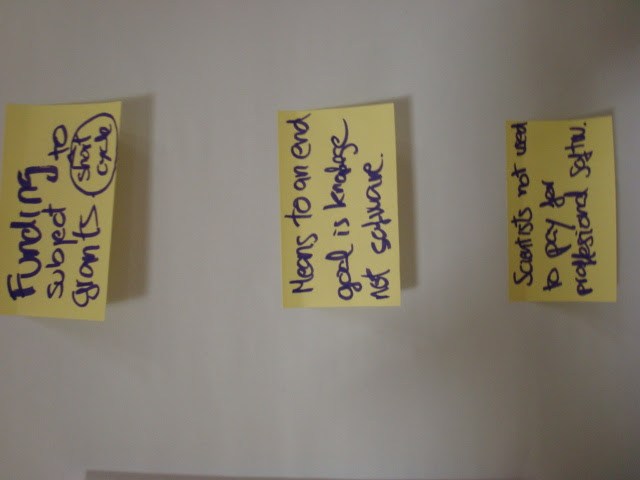 Funding
subject to
grants short
cycle
Means to an end
goal is knowledge
not software.
Scientists not used
to pay for
proffesional softw.